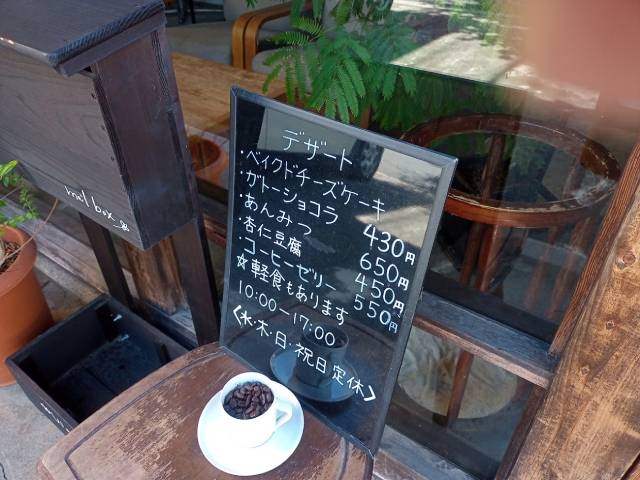 デザート
・ベイクドチーズケーキ
・ガトーショコラ 430円
・あんみつ 650円
・杏仁豆腐 450円
・コーヒーゼリー 550円
☆軽食もあります
10:00-17:00
<水・木・日・祝日定休>
mail box